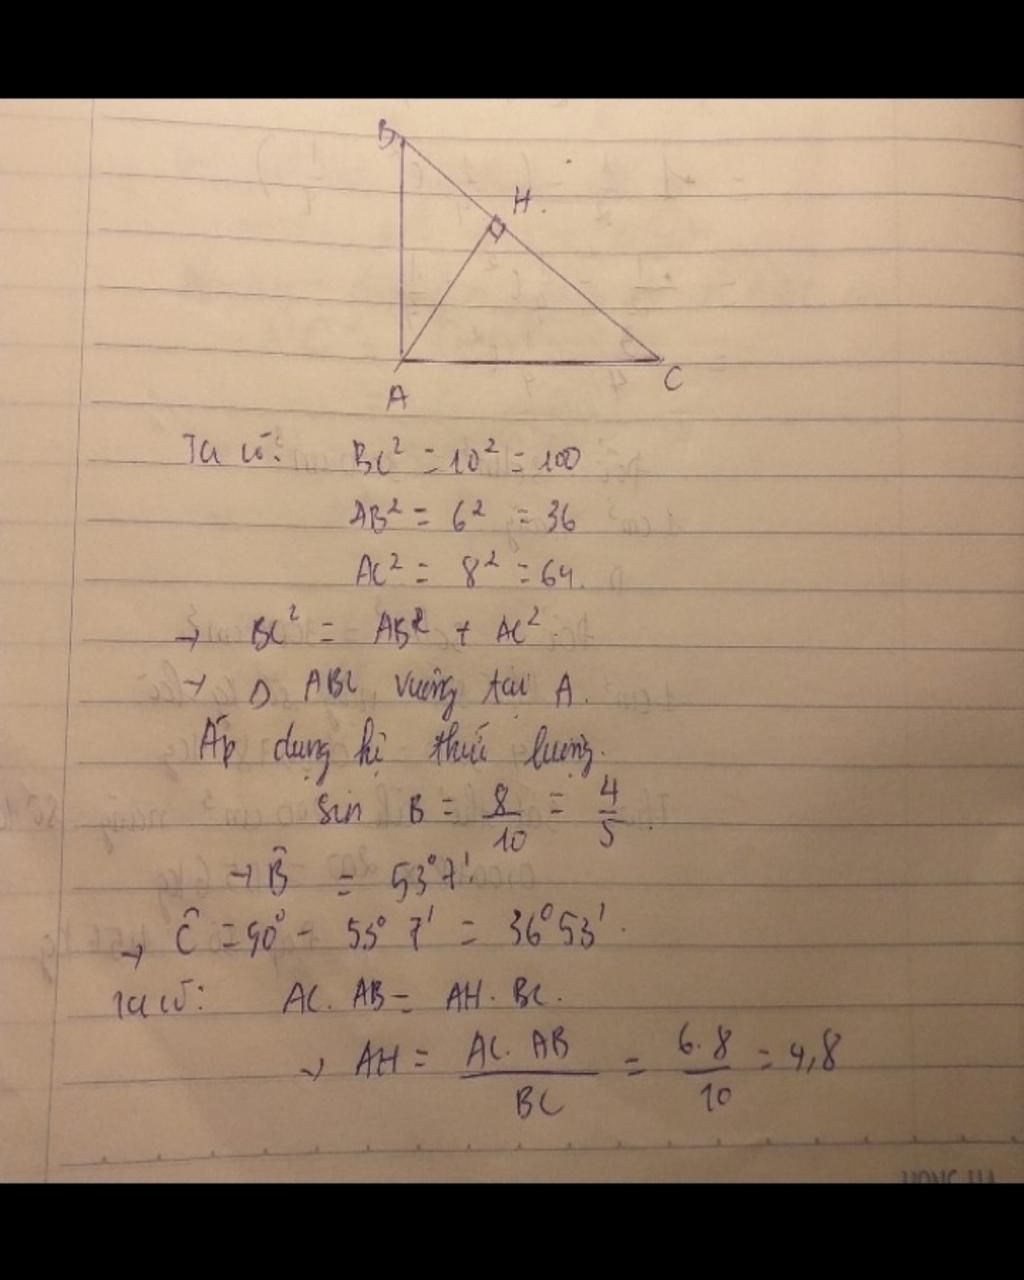 B
H.
A
C
Ta có: BC² = 10² = 100
AB² = 6² = 36
AC² = 8² = 64.
→ BC² = AB² + AC²
→ Δ ABC vuông tại A.
Áp dụng hệ thức lượng.
Sin B = 8/10 = 4/5.
→ B̂ = 53°7'.
→ Ĉ = 90° - 53°7' = 36°53'.
Ta có: AC. AB = AH. BC.
→ AH = AC. AB/BC = 6.8/10 = 4,8